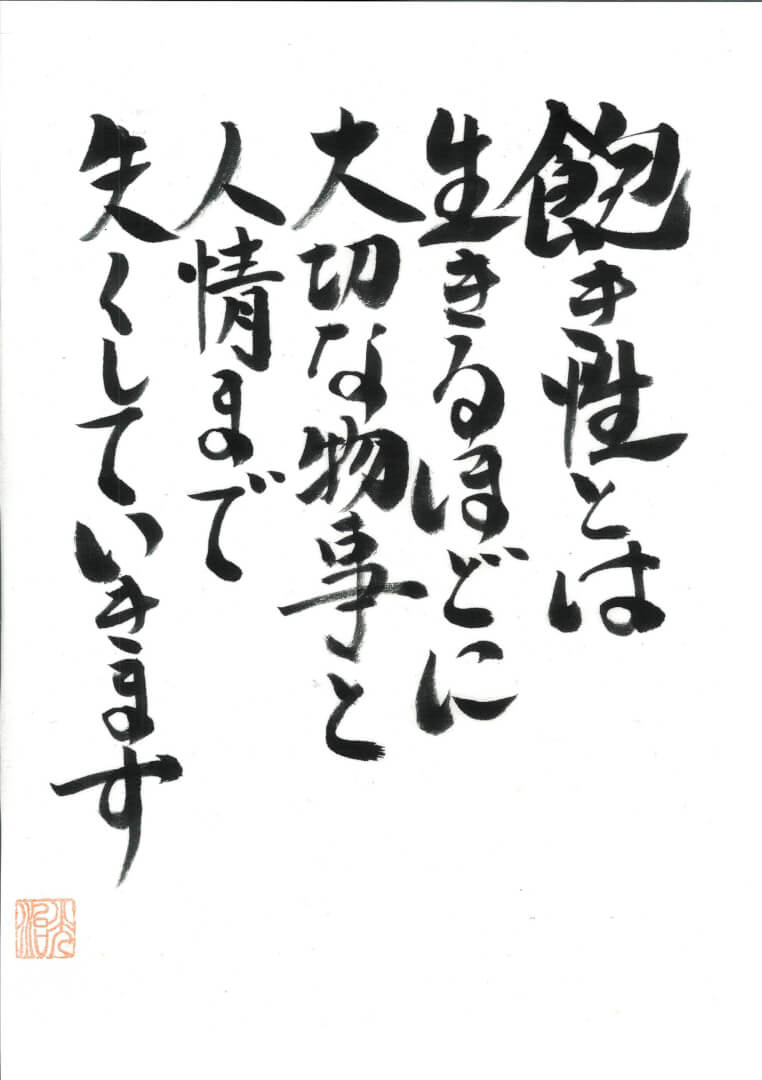 飽き性とは
生きるほどに
大切な物事と
人情まで
失くしていきます